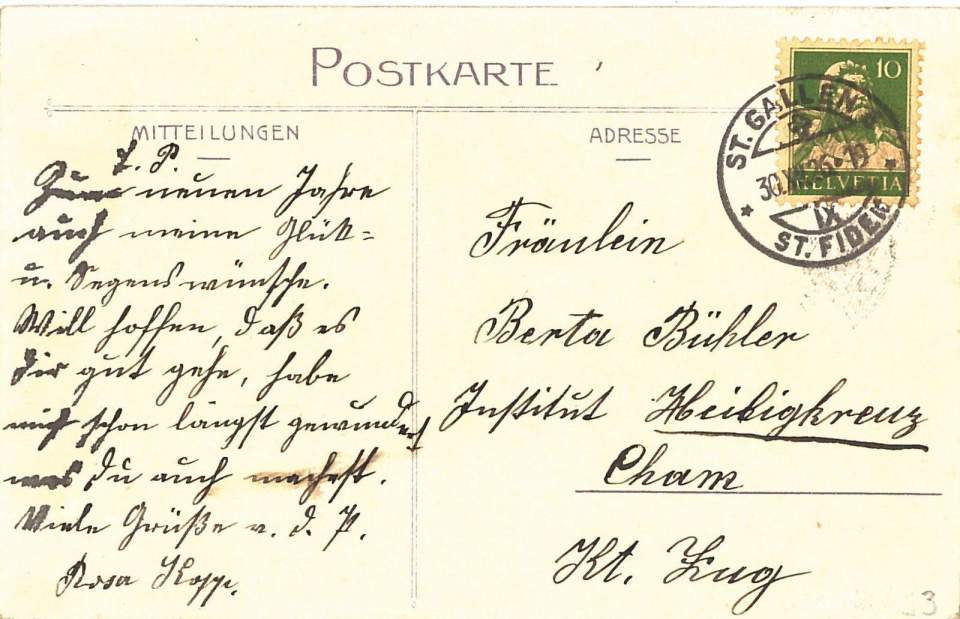 POSTKARTE
MITTEILUNGEN
L. P.
Zum neuen Jahre
auch meine Glük=
u. Segenswünsche.
Will hoffen, daß es
Dir gut gehe, habe
mich schon längst gewundert
was Du auch machest.
Viele Grüße v. d. P.
Rosa Kopp.
ADRESSE
Fräulein
Berta Bühler
Institut Heiligkreuz
Cham
Kt. Zug
10
HELVETIA
ST. GALLEN
30.XII.26-19
IX
ST. FIDEN